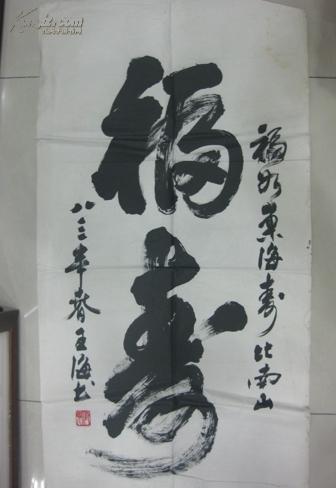 福寿
福如东海寿比南山
八三年春王海书